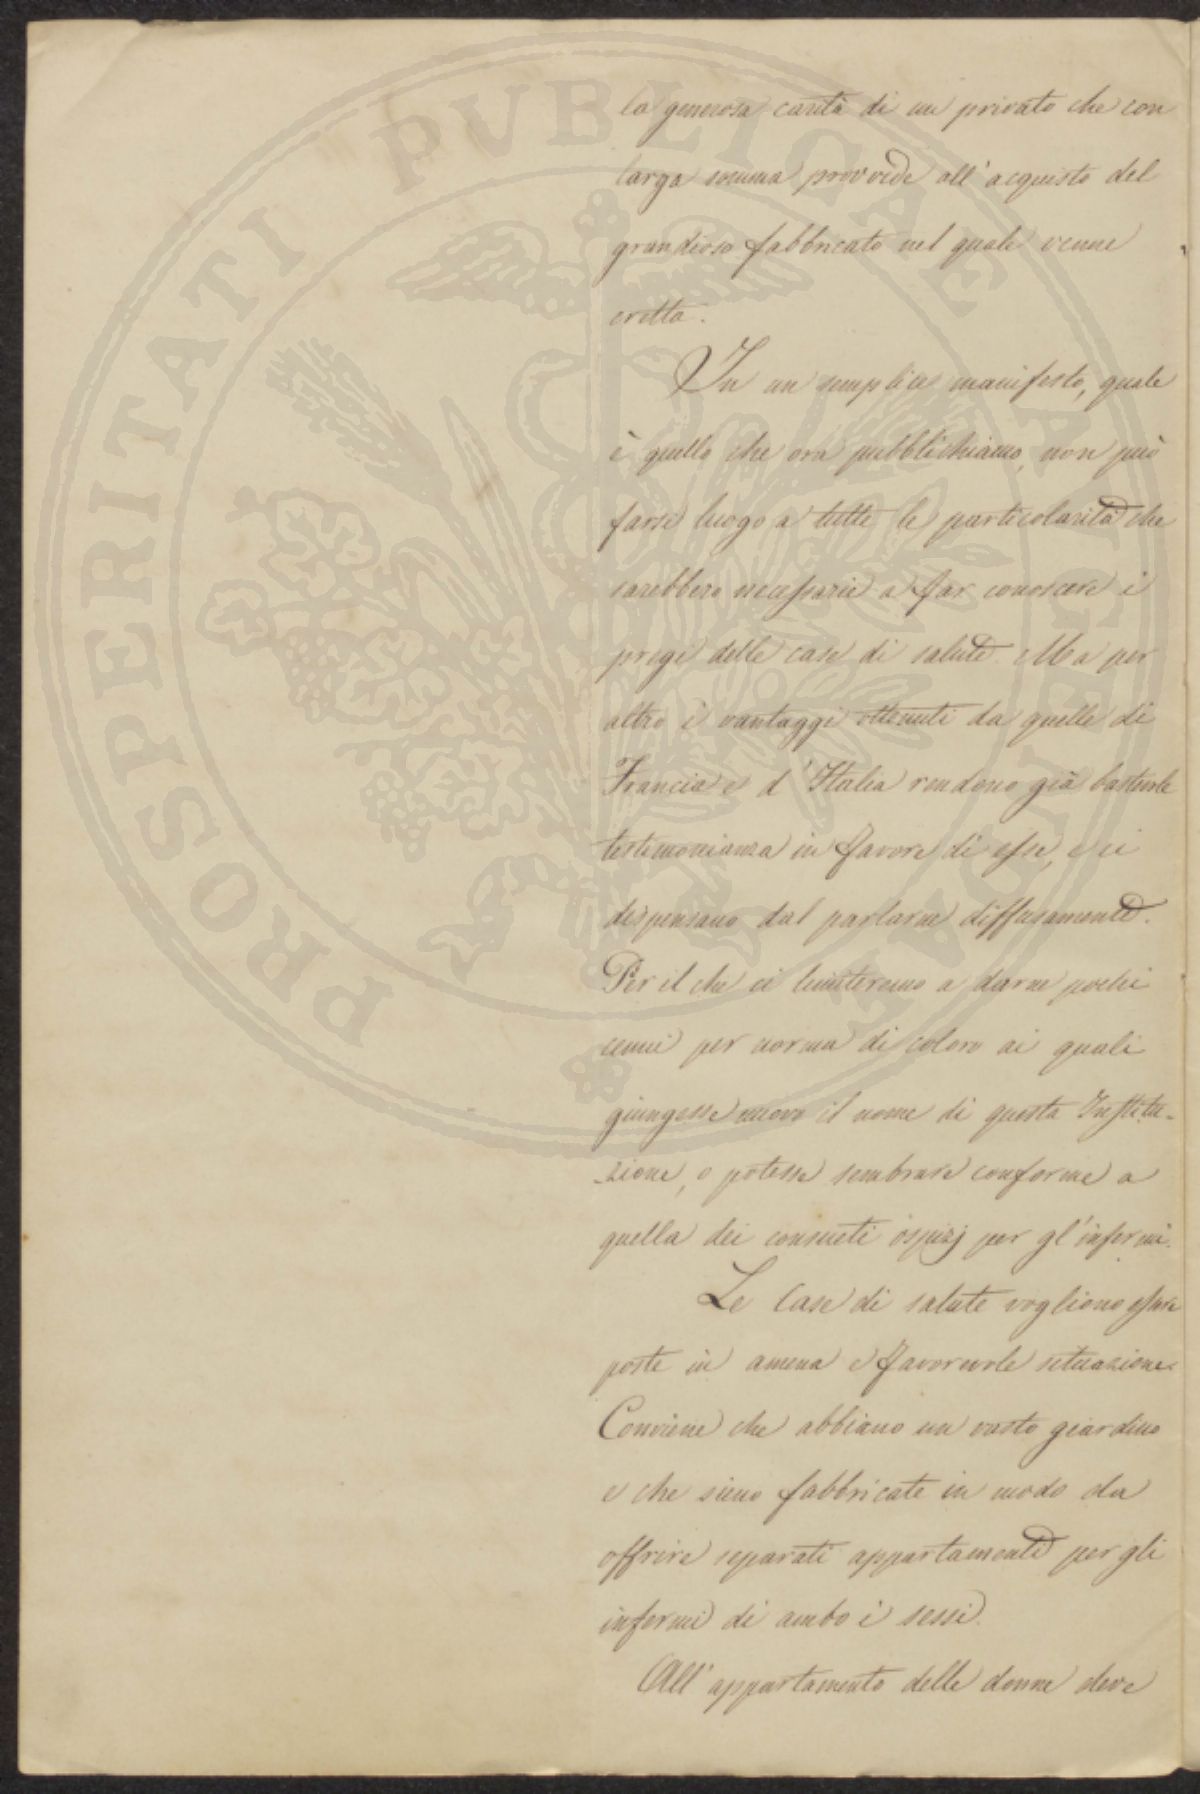 la generosa carità di un privato che con
larga somma provvide all'acquisto del
grandioso fabbricato nel quale venne
eretta.
In un semplice manifesto, quale
è quello che ora pubblichiamo, non può
farsi luogo a tutte le particolarità che
sarebbero necessarie a far conoscere i
pregi delle case di salute. Ma per
altro i vantaggi ottenuti da quelle di
Francia e d'Italia rendono già bastevole
testimonianza in favore di esse, e ci
dispensano dal parlarne diffusamente.
Per il che ci limiteremo a darne pochi
cenni per norma di coloro ai quali
giungesse nuovo il nome di questa Institu-
zione, o potesse sembrare conforme a
quella dei consueti ospizj per gl'infermi.
Le Case di salute vogliono essere
poste in amena e favorevole situazione.
Conviene che abbiano un vasto giardino
e che sieno fabbricate in modo da
offrire separati appartamenti per gli
infermi di ambo i sessi.
All'appartamento delle donne deve
PROSPERITATI PVBLICAE AVGENDAE